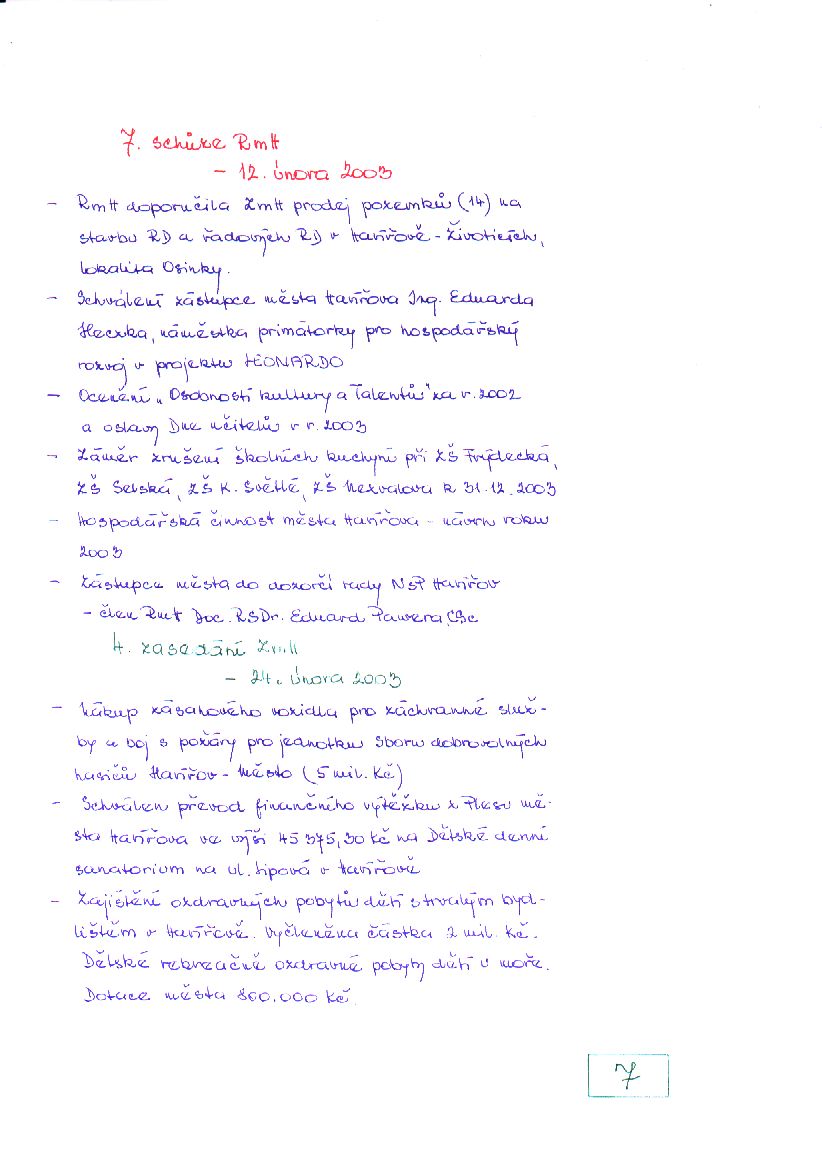 7. schůze RmH
- 12. února 2003
- RmH doporučila ZmH prodej pozemků (14) na
stavbu RD a řadových RD v Havířově - Životicích,
lokalita Osinky.
- Schválení zástupce města Havířova Ing. Eduarda
Heczka, náměstka primátorky pro hospodářský
rozvoj v projektu LEONARDO
- Ocenění „Osobností kultury a Talentů" za r. 2002
a oslavy Dne učitelů v r. 2003
- Záměr zrušení školních kuchyní při ZŠ Frýdecká,
ZŠ Selská, ZŠ K. Světlé, ZŠ Nezvalova k 31.12.2003
- Hospodářská činnost města Havířova - návrh roku
2003
- Zástupce města do dozorčí rady NsP Havířov
- člen RmH Doc. RSDr. Eduard Pawera, CSc
4. zasedání ZmH
- 24. února 2003
- Nákup zásahového vozidla pro záchranné služ-
by a boj s požáry pro jednotku Sboru dobrovolných
hasičů Havířov - Město (5 mil. Kč)
- Schválen převod finančního výtěžku z Plesu mě-
sta Havířova ve výši 45 375,30 Kč na Dětské denní
sanatorium na ul. Lipová v Havířově
- Zajištění ozdravných pobytů dětí s trvalým byd-
lištěm v Havířově. Vyčleněna částka 2 mil. Kč.
Dětské rekreačně ozdravné pobyty dětí u moře.
Dotace města 800.000 Kč.
7